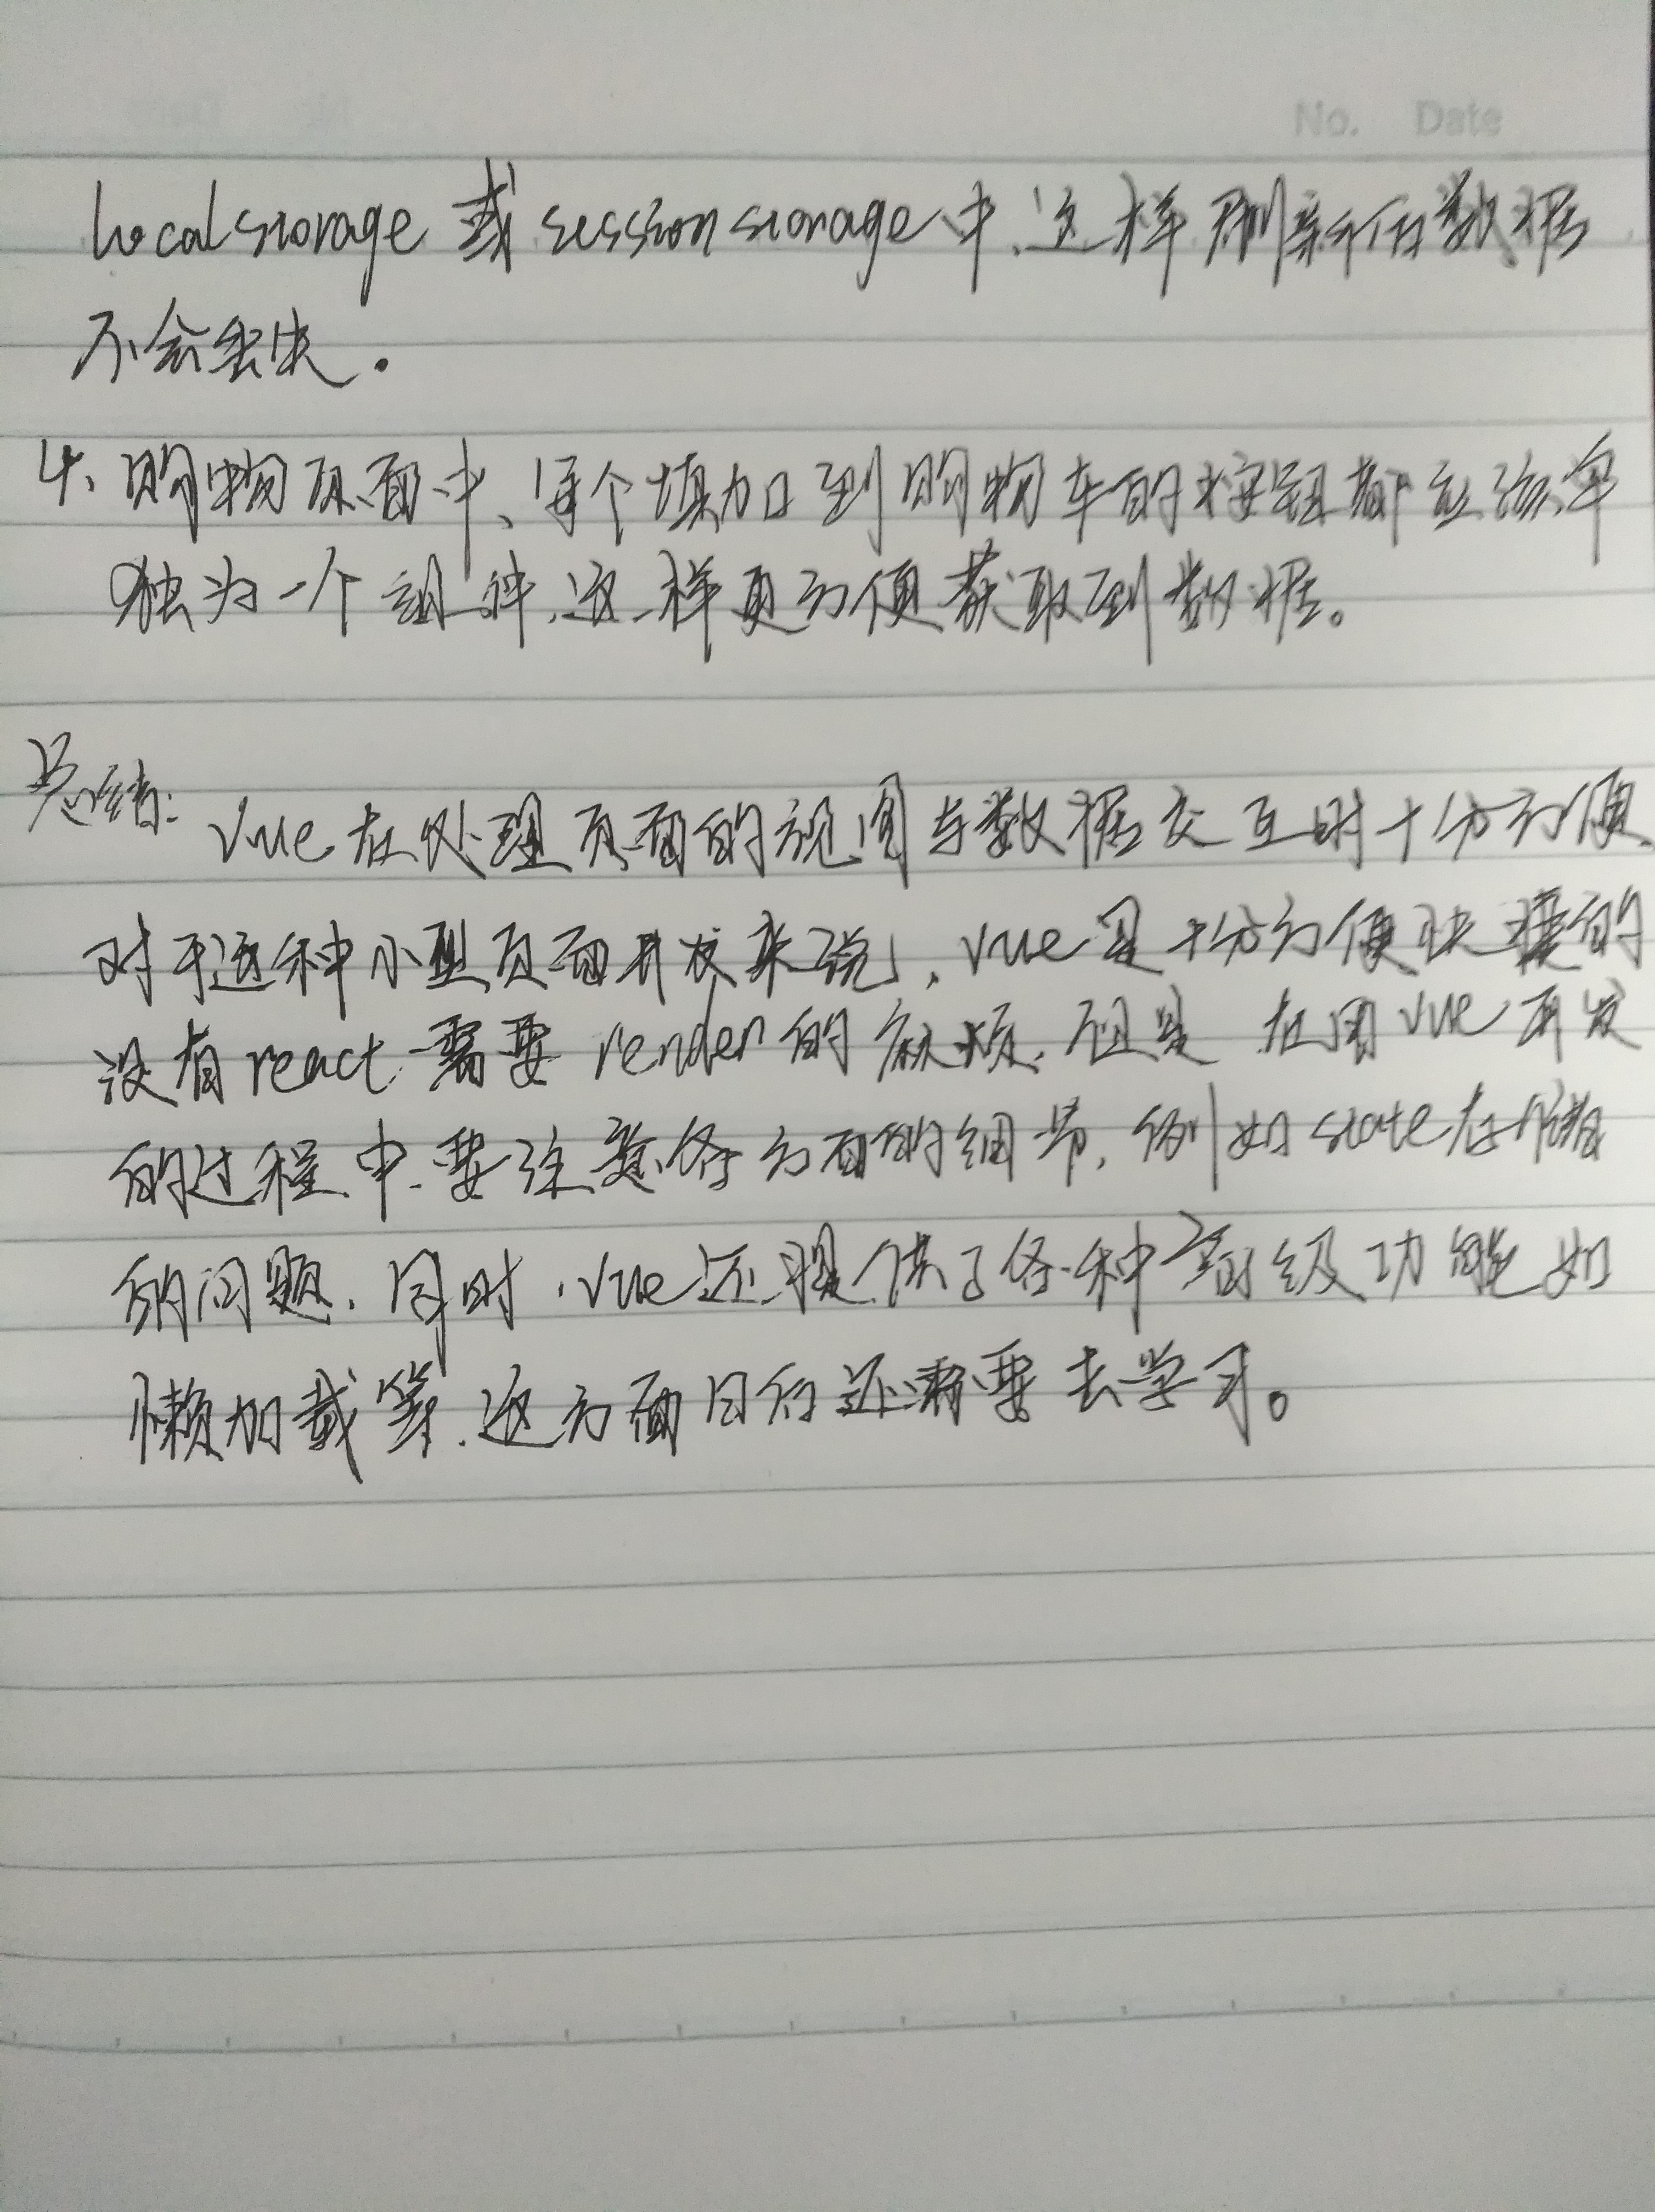 No. Date
localstorage 或 sessionstorage 中,这样刷新后数据
不会丢失.
4、购物页面中、每个填加到购物车的按钮都应该单
独为一个组件,这样更方便获取到数据。
总结: vue在处理页面的视图与数据交互时十分方便,
对于这种小型页面开发来说,vue是十分方便快捷的
没有react需要render的麻烦.但是 在用vue开发
的过程中,要注意各方面的细节,例如state存储
的问题.同时,vue还提供了各种高级功能如
懒加载等.这方面日后还需要去学习。